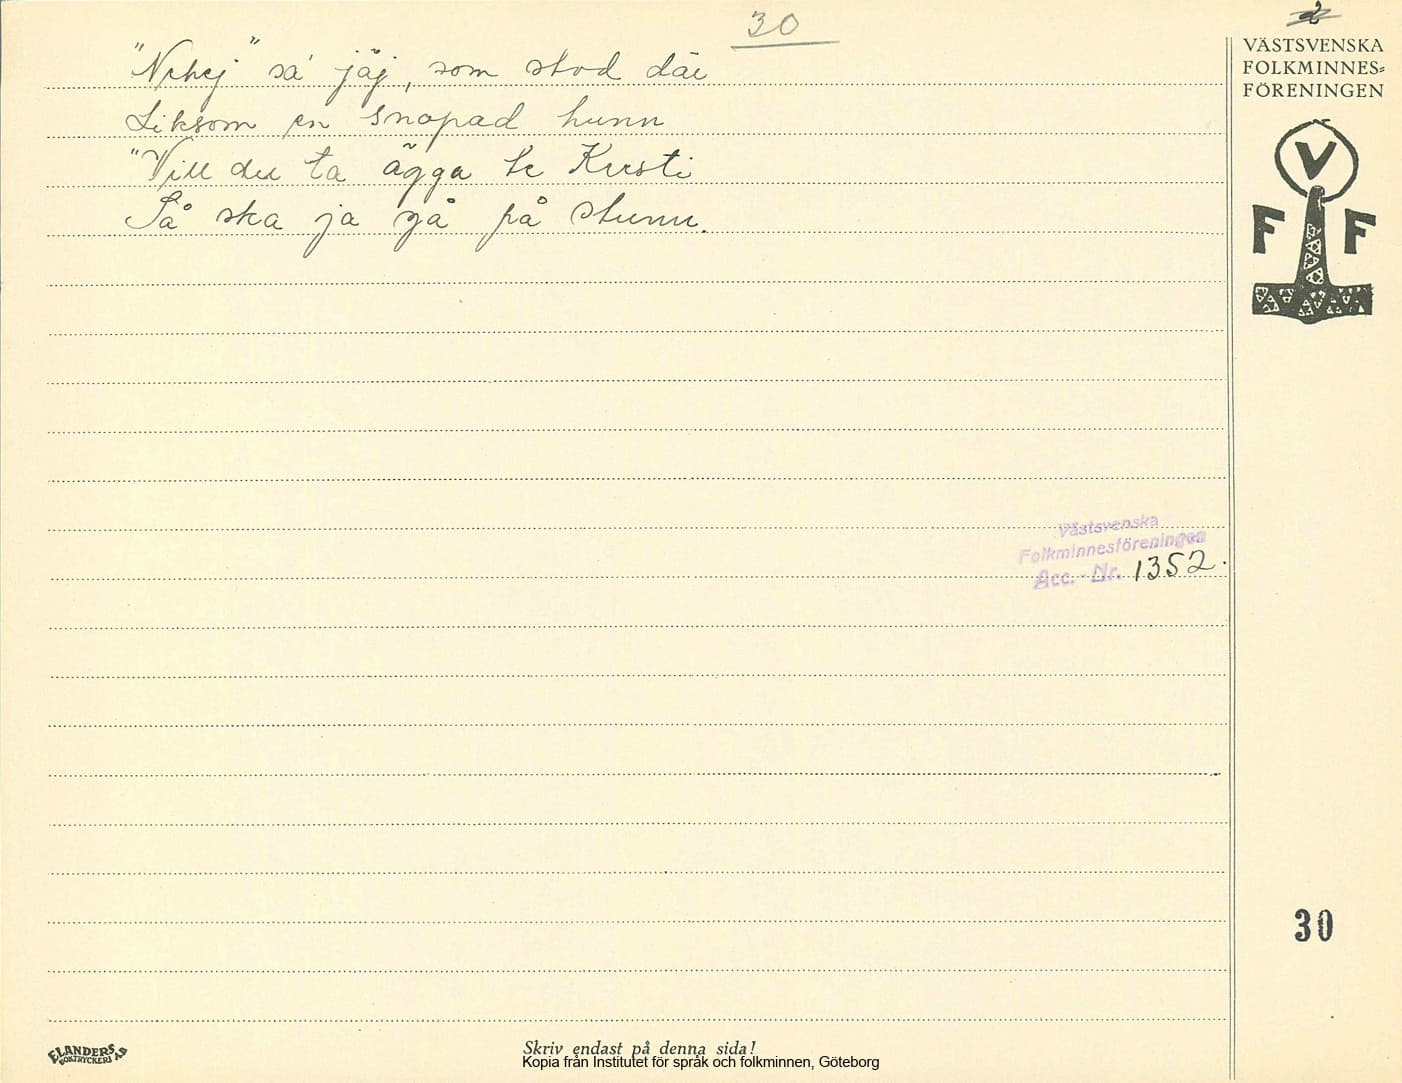 30
"Nehej" sa' jäj, som stod där
Liksom en snopad hunn
"Vill du ta ägga te Kersti
Så ska ja gå på stunn.
VÄSTSVENSKA
FOLKMINNES=
FÖRENINGEN
V
F F
Västsvenska
Folkminnesföreningen
Acc. - Nr. 1352.
30
ELANDERS
BOKTRYCKERI AB
Skriv endast på denna sida!
Kopia från Institutet för språk och folkminnen, Göteborg